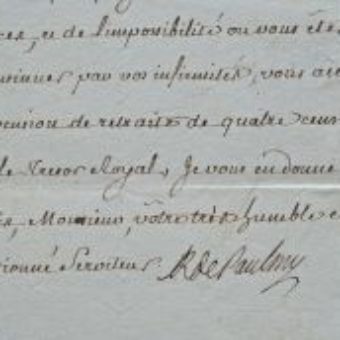 ces, et de l'impossibilité ou vous êtes
par vos infirmités, vous a
pension de retraite de quatre cens
le Tresor Royal, Je vous en donne
Monsieur, vôtre très humble e
ionné Serviteur R de Paulmy